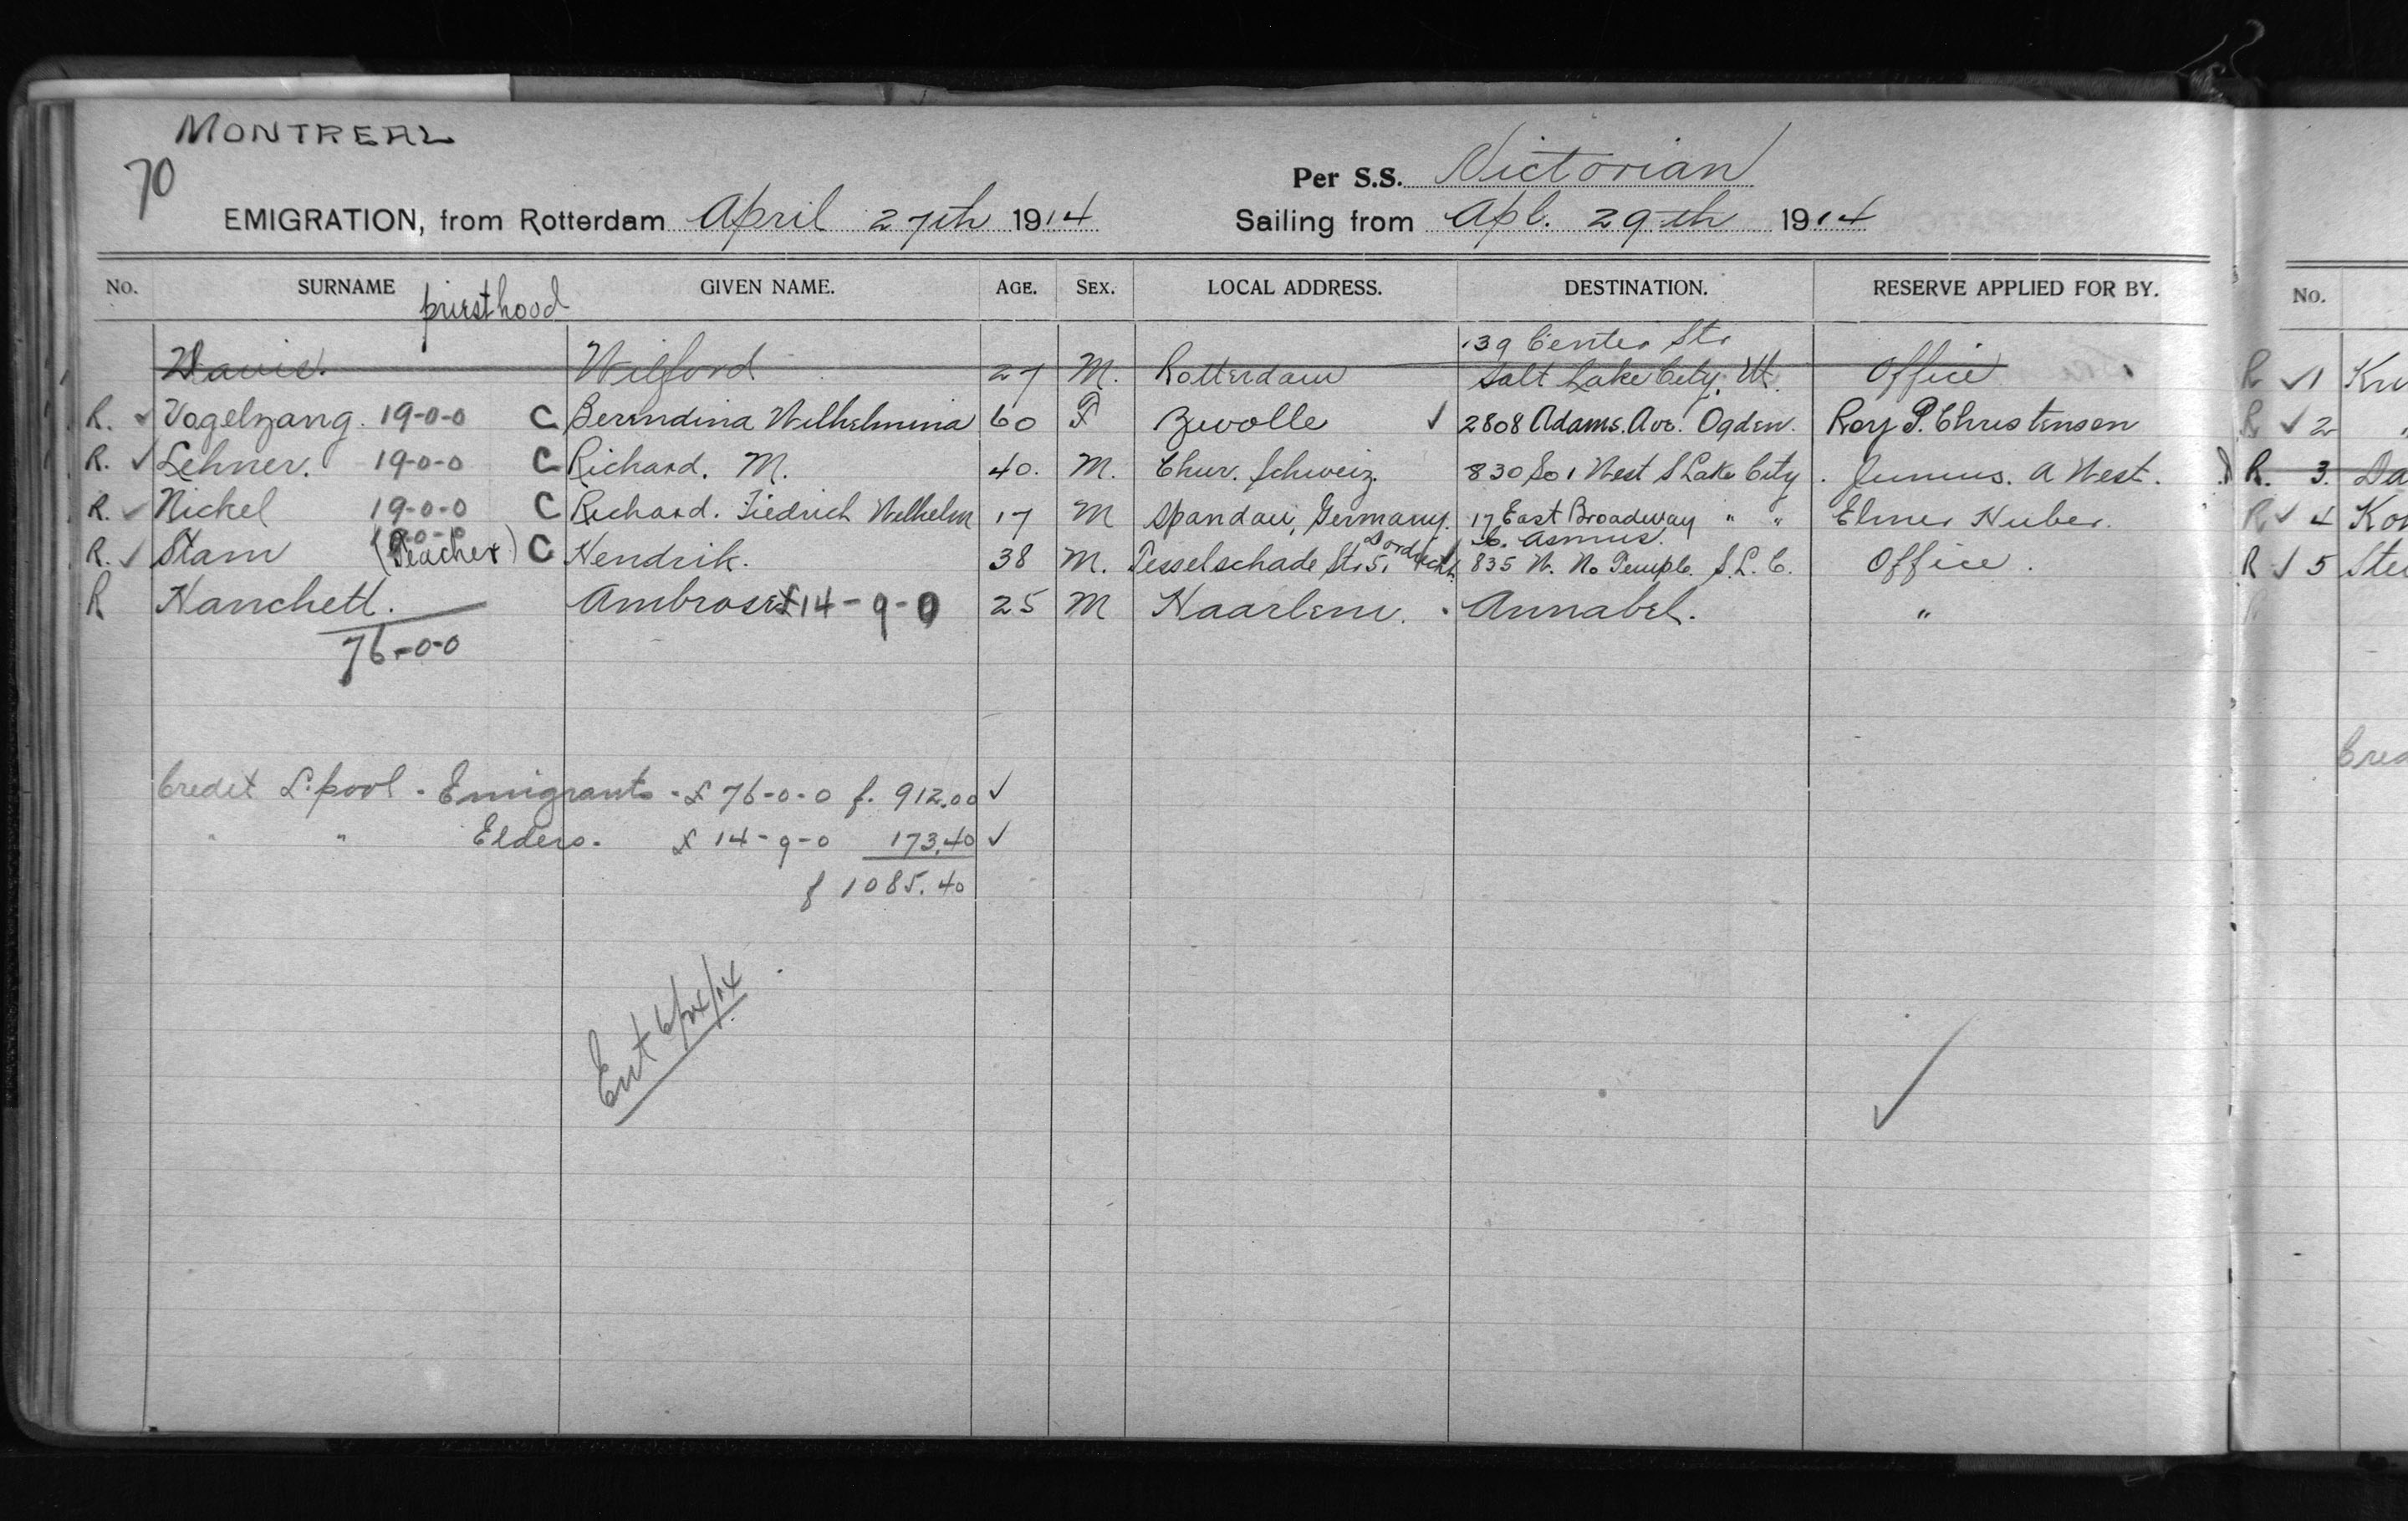 MONTREAL
70
Per S.S. Victorian
EMIGRATION, from Rotterdam April 27th 1914 Sailing from Apl. 29th 1914
No. SURNAME priesthood GIVEN NAME. AGE. SEX. LOCAL ADDRESS. DESTINATION. RESERVE APPLIED FOR BY. No.
139 Center St.
Davis. Wilford 27 M. Rotterdam Salt Lake City, Ut. Office R ✓ 1
R. ✓ Vogelzang. 19-0-0 C Berendina Wilhelmina 60 F Zwolle ✓ 2808 Adams. Ave. Ogden. Roy P. Christensen R ✓ 2 "
R. ✓ Lehner. 19-0-0 C Richard. M. 40. M. Chur. Schweiz. 830 So 1 West S Lake City. Junius. A West. R. 3. Da
R. ✓ Nickel 19-0-0 C Richard. Fiedrich Wilhelm 17 M Spandau, Germany. 17 East Broadway " " Elmer Huber. R ✓ 4 Kon
19-0-0 Dordrecht C. Asmus.
R. ✓ Stam (Teacher) C Hendrik. 38 M. Tesselschade St. 5, 835 W. No Temple. S.L.C. Office. R ✓ 5 Ste
R Hanchett. Ambrose £14-9-0 25 M Haarlem. Annabel. "
76-0-0
Credit L.pool - Emigrants - £ 76-0-0 f. 912.00 ✓
" " Elders. £ 14-9-0 173.40 ✓
f 1085.40
Ent 6/24/14
✓
Cred